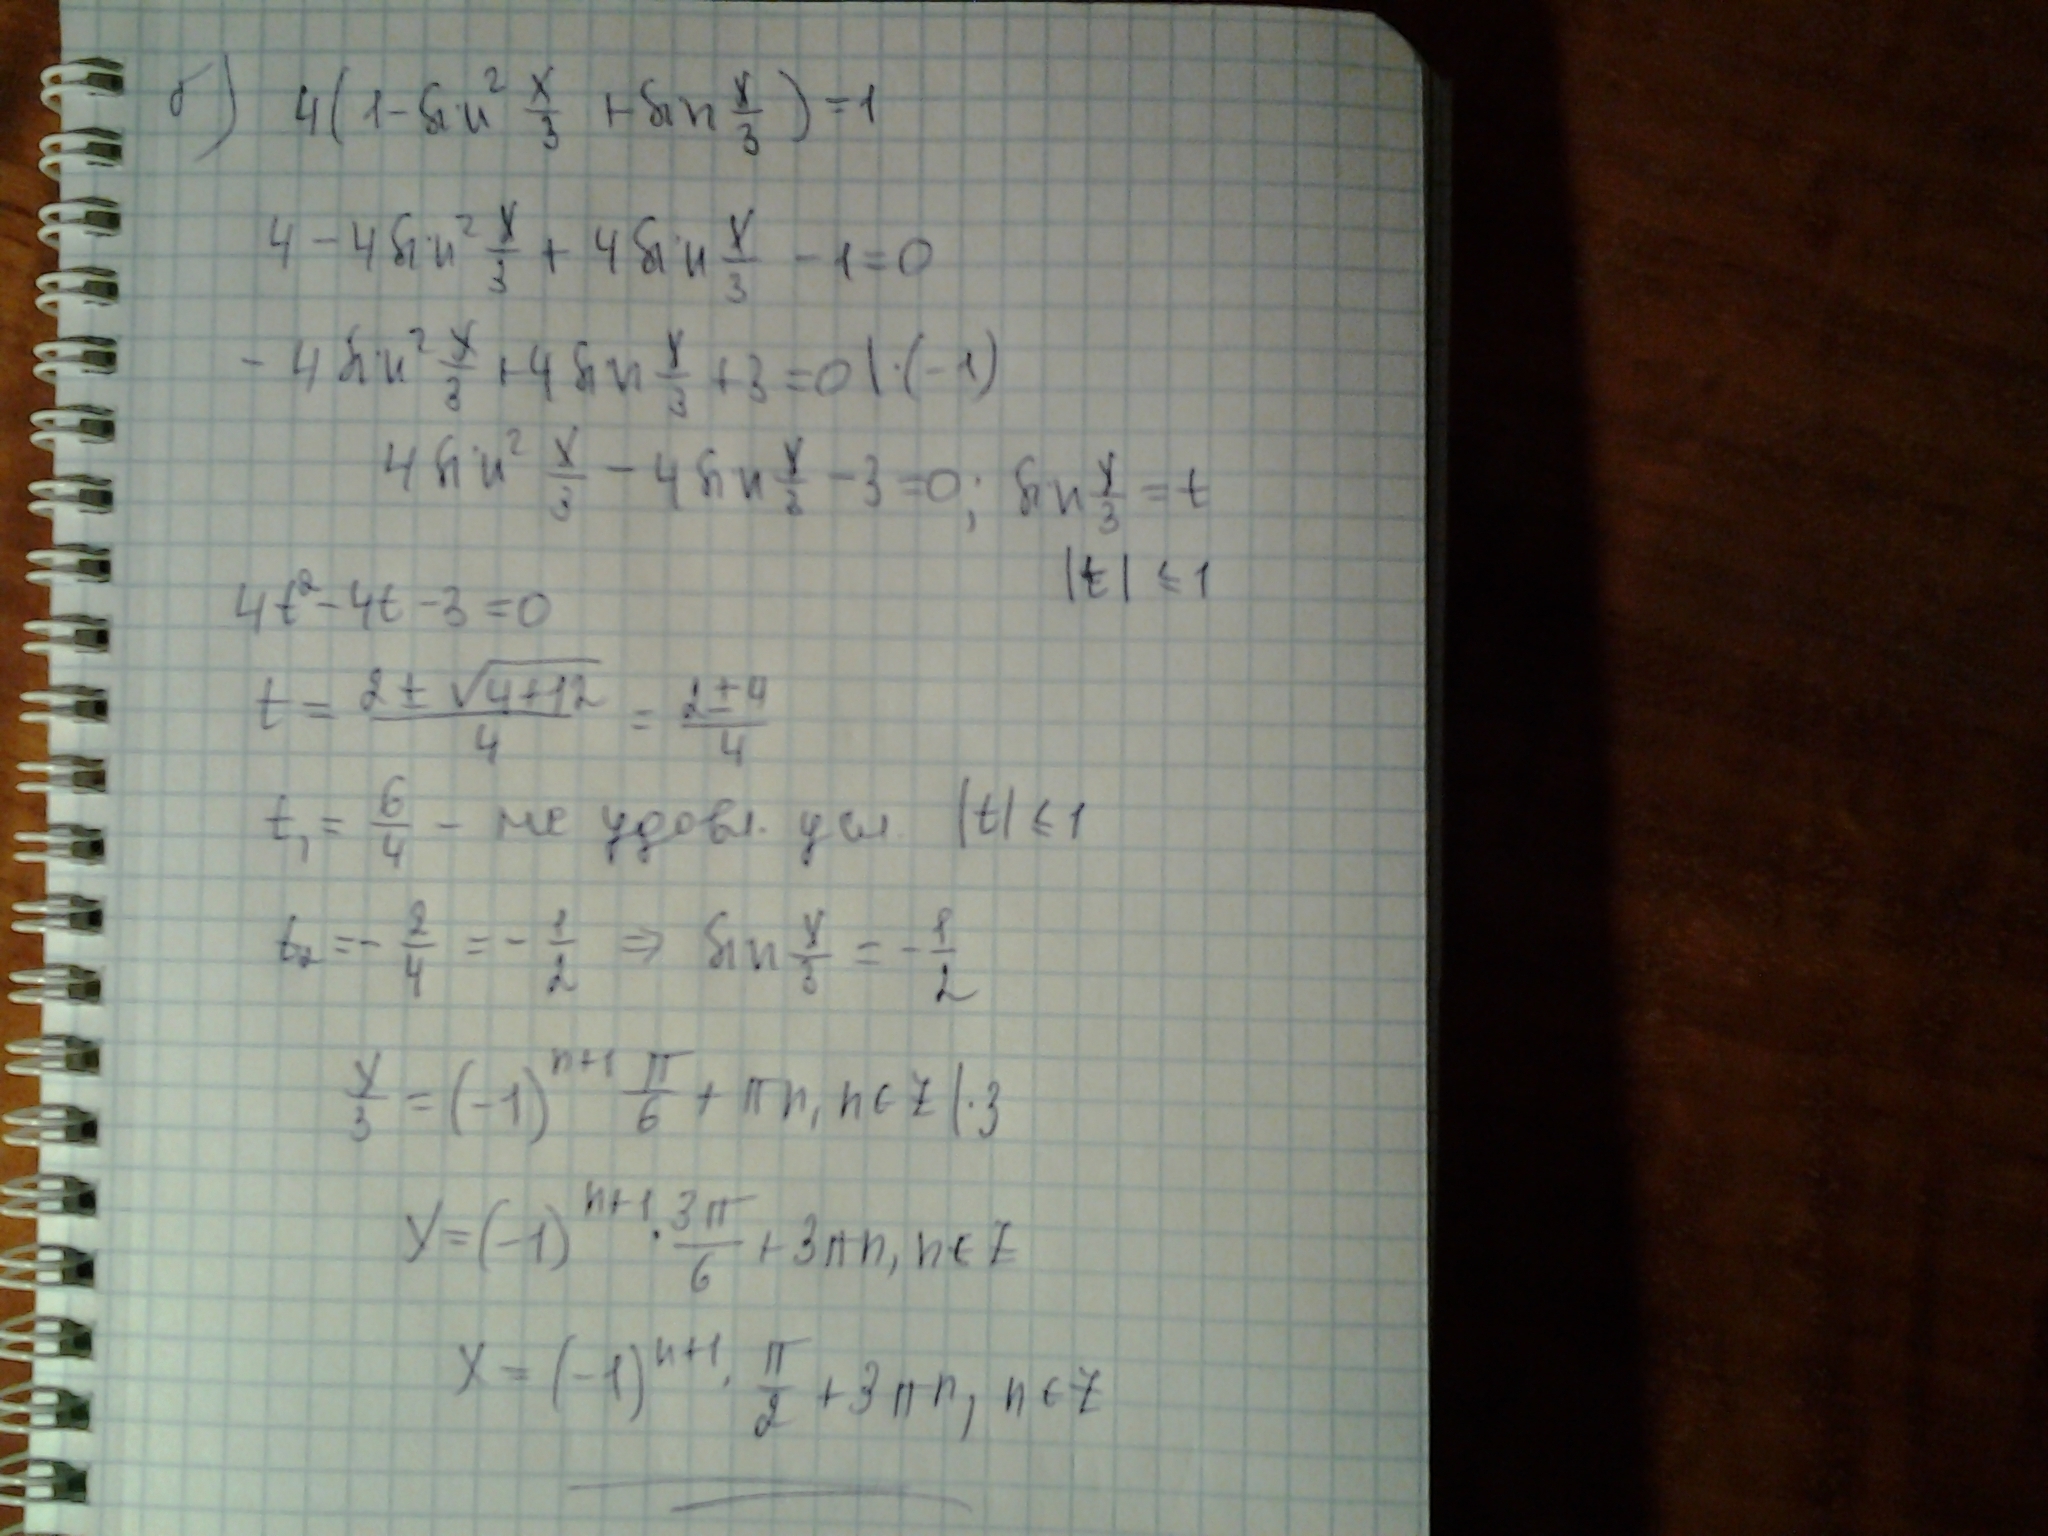 б) 4(1-sin² x/3 + sin x/3) = 1
4 - 4sin² x/3 + 4sin x/3 - 1 = 0
- 4 sin² x/3 + 4 sin x/3 + 3 = 0 | · (-1)
4 sin² x/3 - 4 sin x/3 - 3 = 0; sin x/3 = t
|t| ≤ 1
4t² - 4t - 3 = 0
t = (2 ± √(4+12))/4 = (2 ± 4)/4
t₁ = 6/4 - не удовл. усл. |t| ≤ 1
t₂ = - 2/4 = - 1/2 ⇒ sin x/3 = - 1/2
x/3 = (-1)ⁿ⁺¹ π/6 + πn, n ∈ Z | · 3
x = (-1)ⁿ⁺¹ · 3π/6 + 3πn, n ∈ Z
x = (-1)ⁿ⁺¹ · π/2 + 3πn, n ∈ Z